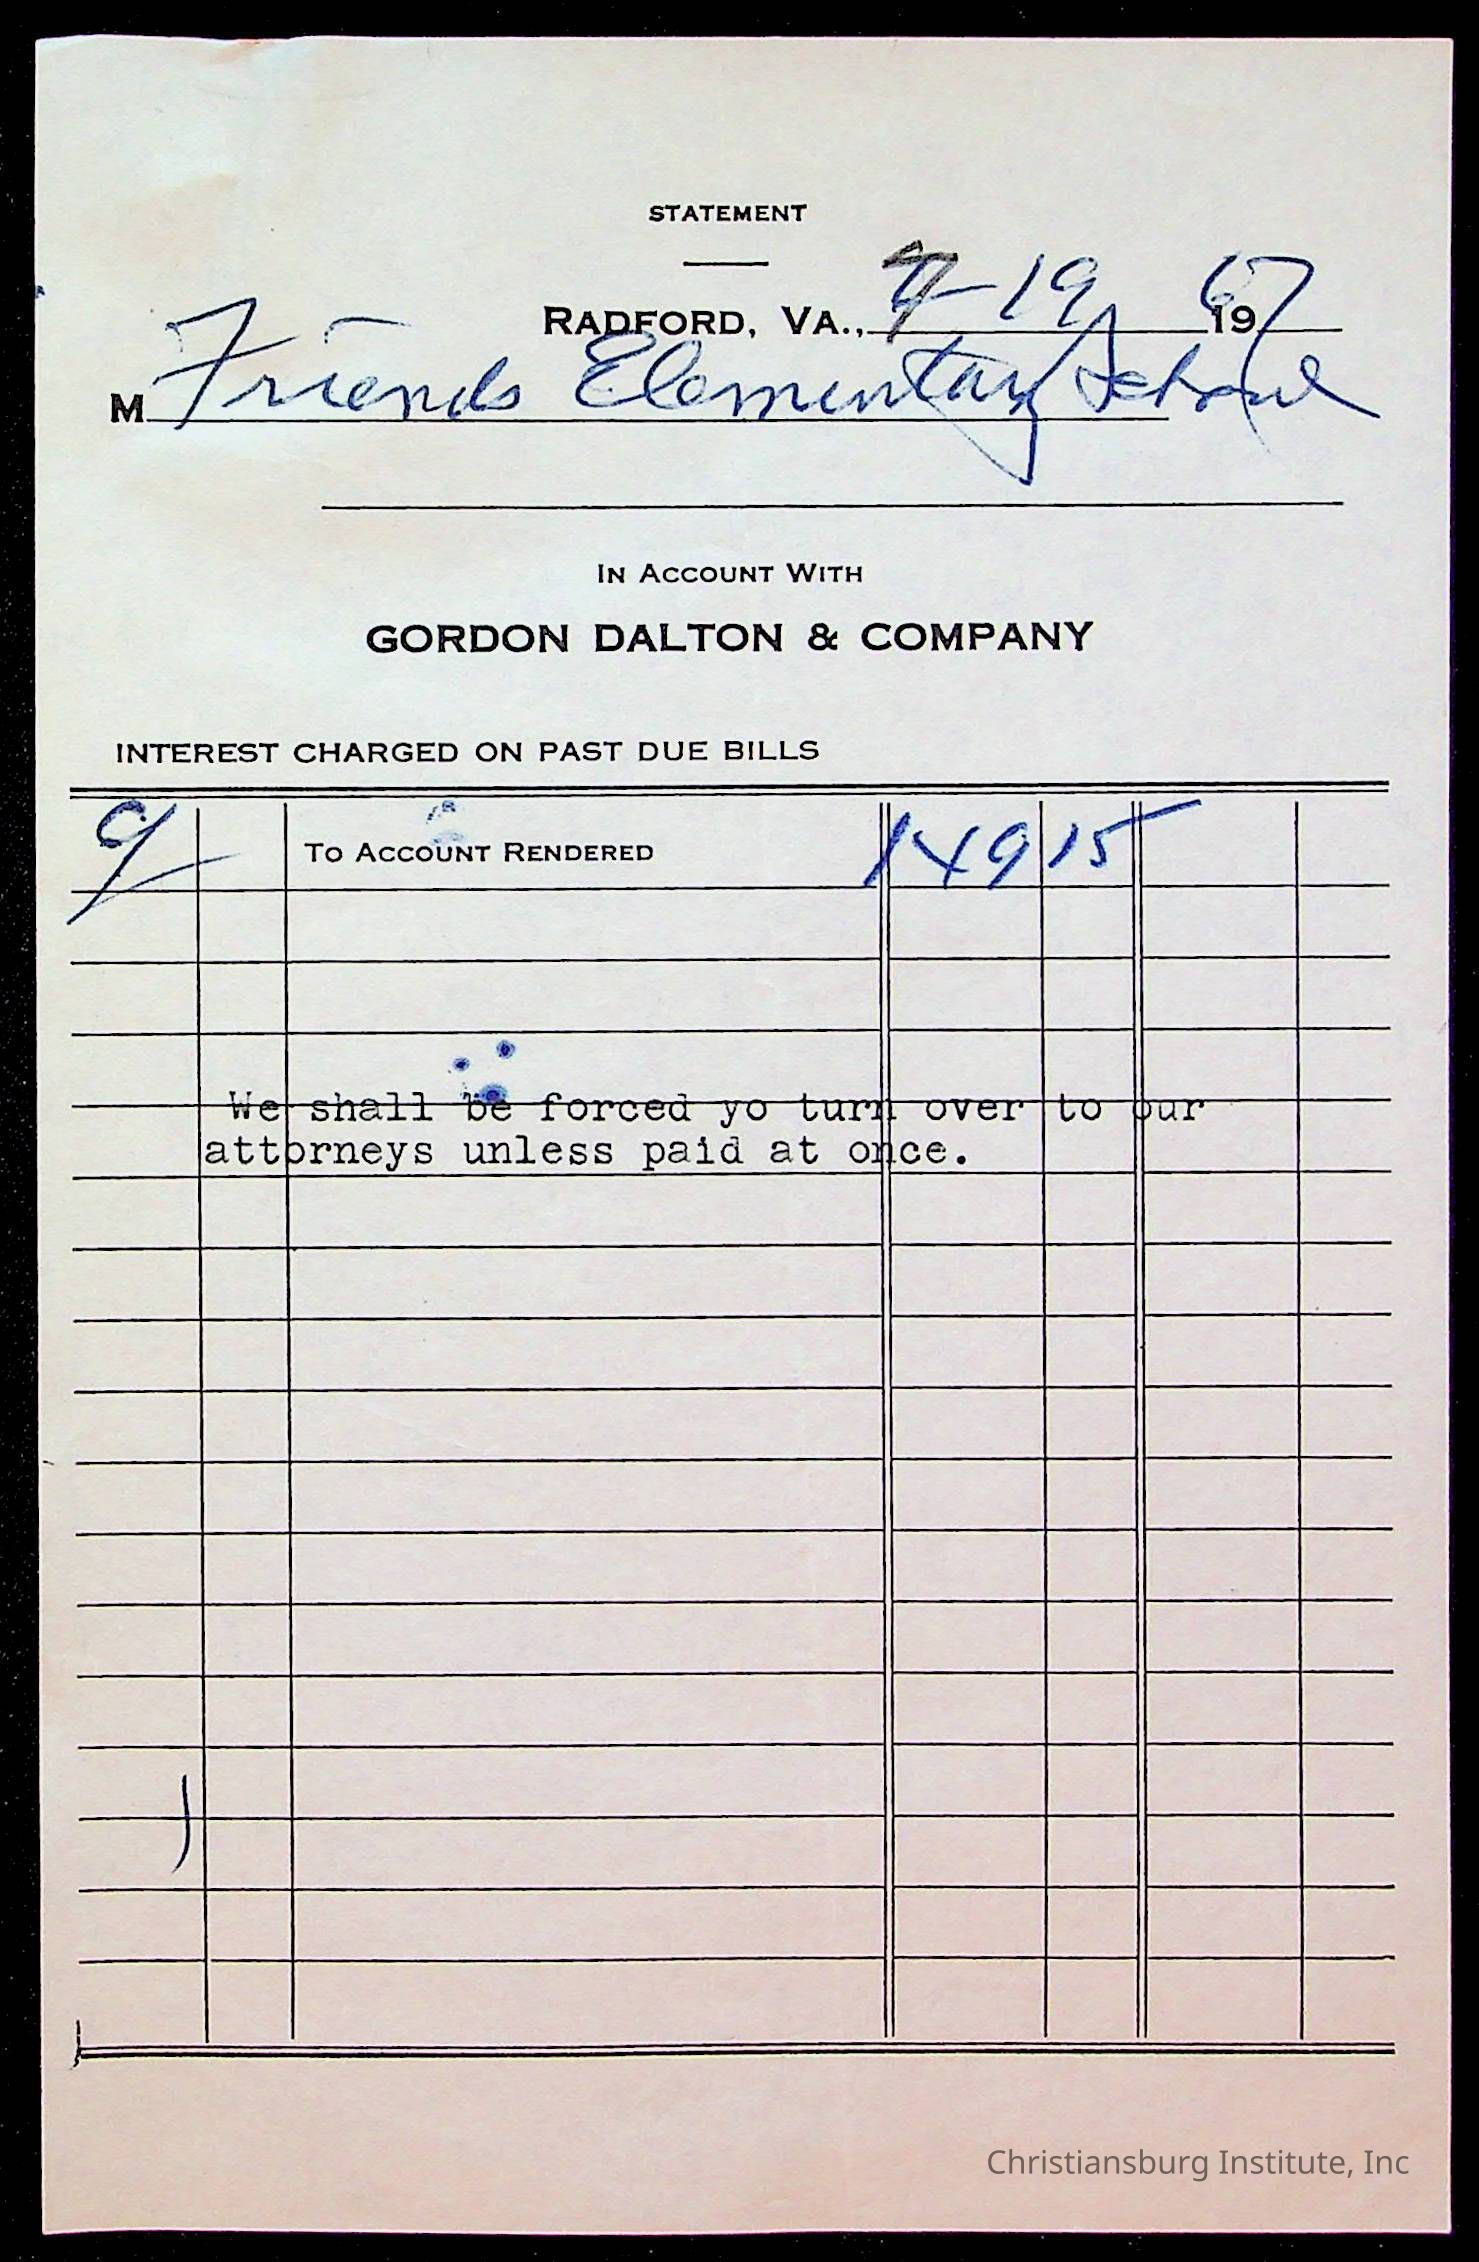 STATEMENT
RADFORD, VA., 9-19 1967
M Friends Elementary School
IN ACCOUNT WITH
GORDON DALTON & COMPANY
INTEREST CHARGED ON PAST DUE BILLS
9/ TO ACCOUNT RENDERED 149 15
We shall be forced yo turn over to our
attorneys unless paid at once.
Christiansburg Institute, Inc